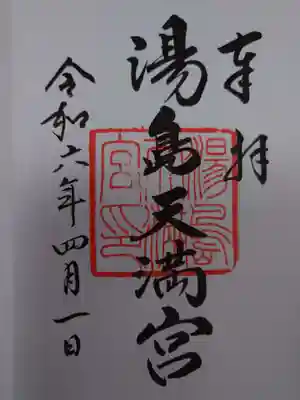 奉拝
湯島天満宮
令和六年四月一日